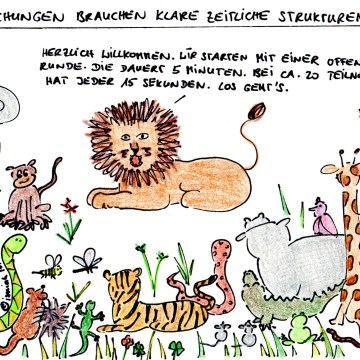 CHUNGEN BRAUCHEN KLARE ZEITLICHE STRUKTUREN
HERZLICH WILLKOMMEN. WIR STARTEN MIT EINER OFFEN
RUNDE. DIE DAUERT 5 MINUTEN. BEI CA. 20 TEILN
HAT JEDER 15 SEKUNDEN. LOS GEHT'S.